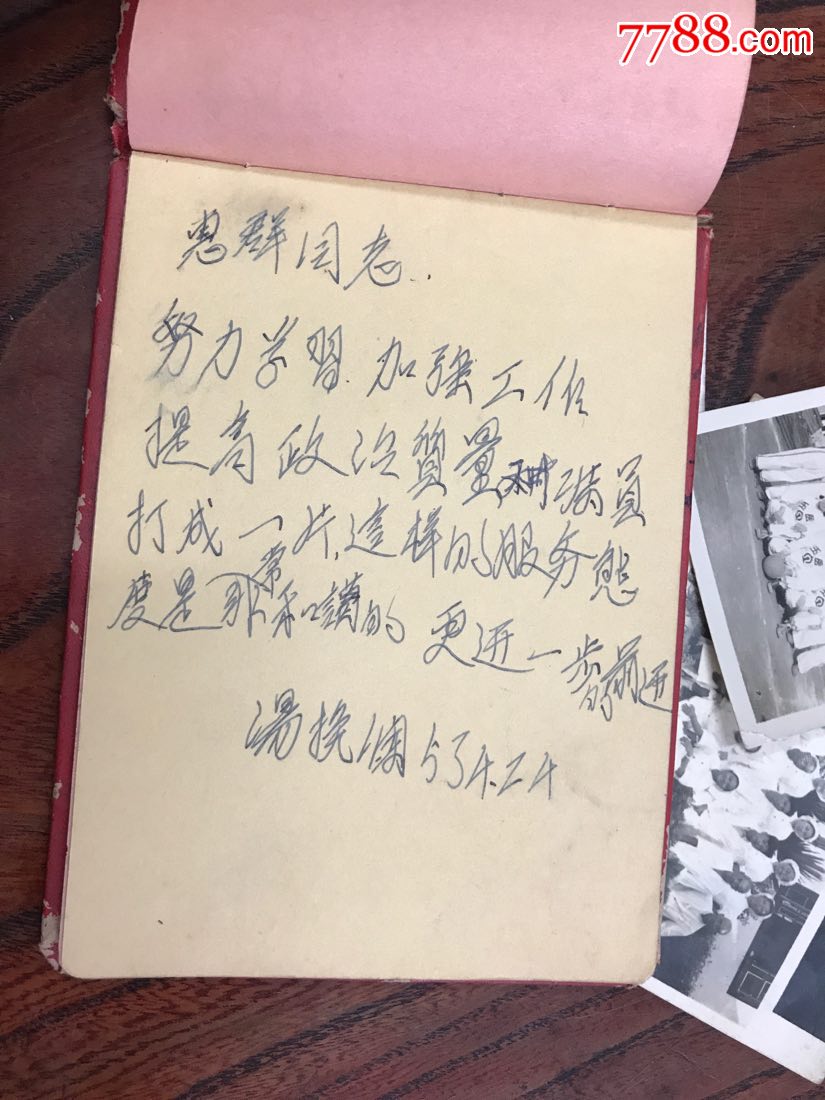 7788.com
惠群同志.
努力学習.加强工作
提高政治質量,和病員
打成一片,這样的服务態
度是非常和譪的 更进一步的前进
湯挽 54.24